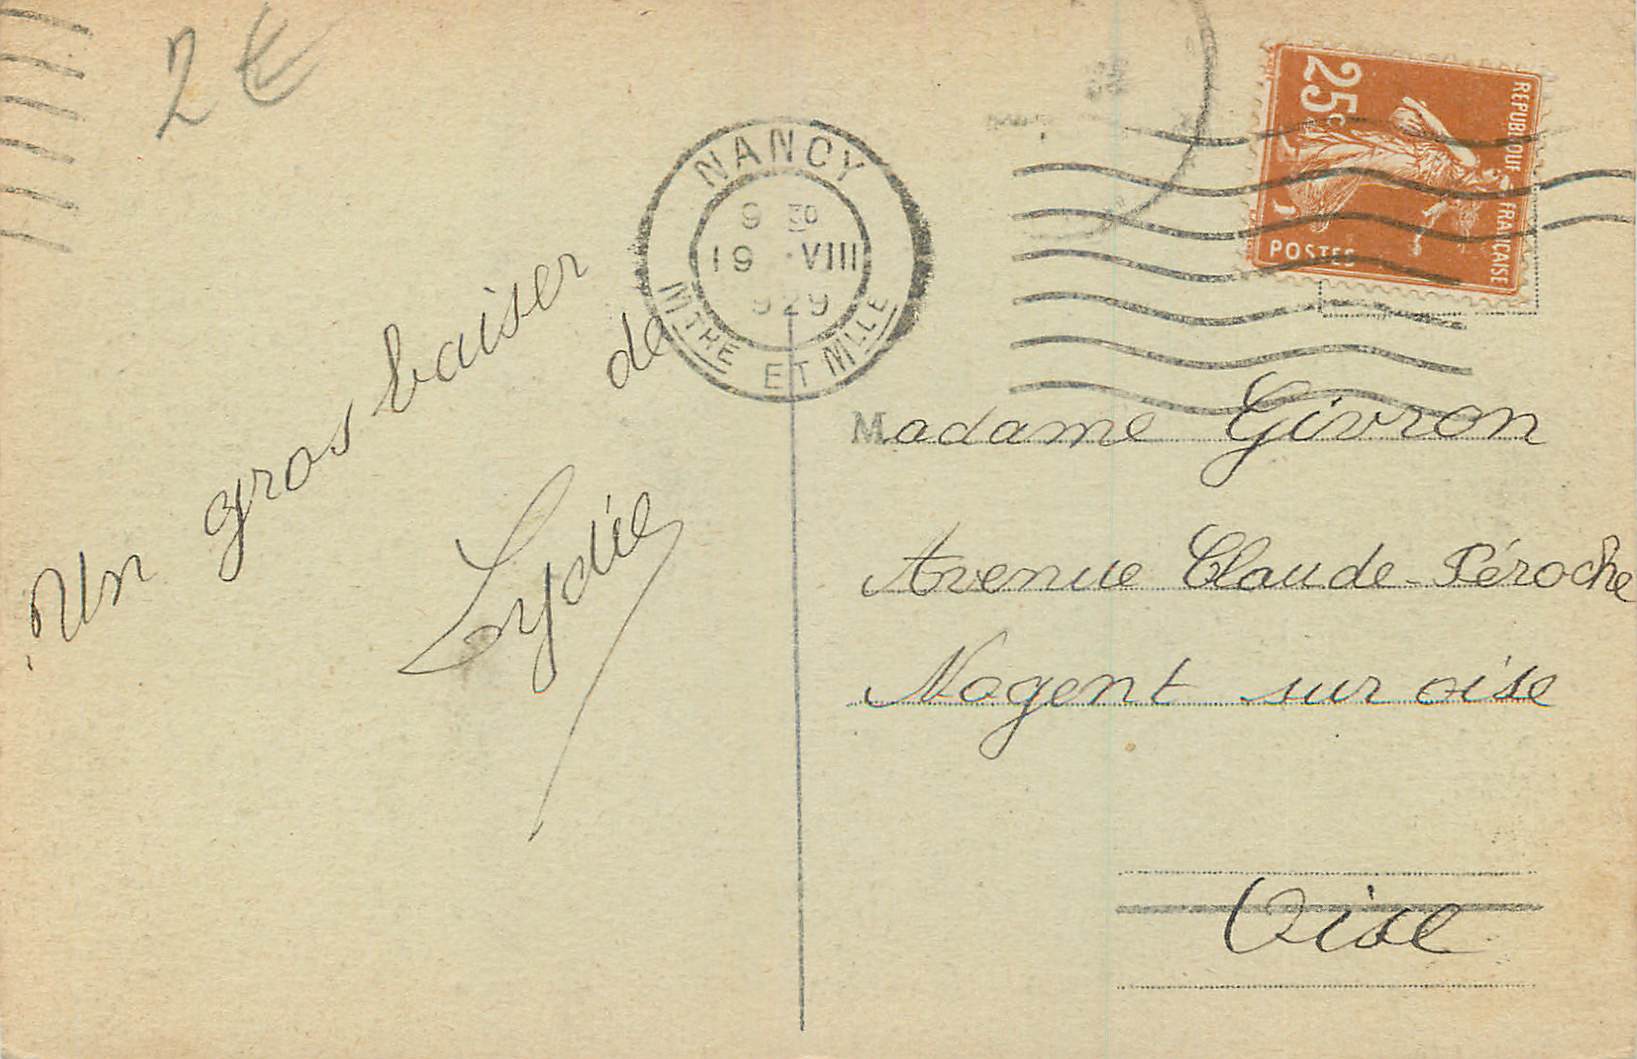 2 €
NANCY
9 30
19 VIII
929
MTHE ET MLLE
REPUBLIQUE FRANÇAISE
25c
POSTES
Un gros baiser
de
Lydie
Madame Givron
Avenue Claude-Péroche
Nogent sur oise
Oise